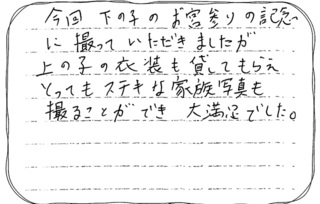 今回 下の子の お宮参りの記念
に 撮って いただきましたが
上の子の衣装も貸してもらえ
とってもステキな家族写真も
撮ることができ 大満足でした。